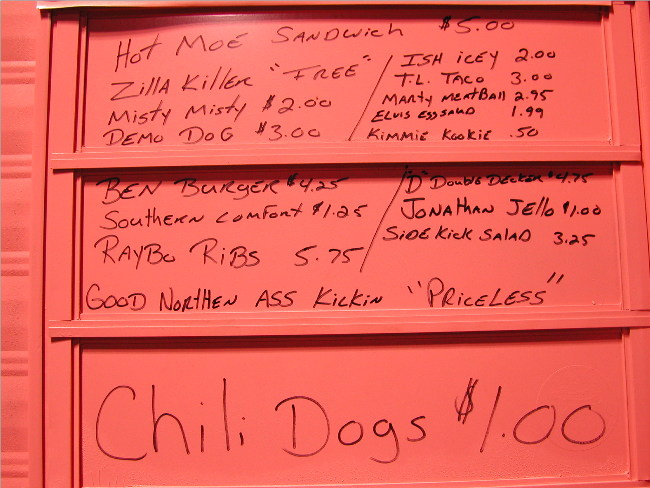 HOT MOE SANDWICH $5.00
ZILLA KILLER "FREE"
MISTY MISTY $2.00
DEMO DOG $3.00
ISH ICEY 2.00
T.L. TACO 3.00
MARTY MEATBALL 2.95
ELVIS EGGSALAD 1.99
KIMMIE KOOKIE .50
BEN BURGER $4.25
SOUTHERN COMFORT $1.25
RAYBO RIBS 5.75
"D" DOUBLE DECKER $4.75
JONATHAN JELLO $1.00
SIDEKICK SALAD 3.25
GOOD NORTHEN ASS KICKIN "PRICELESS"
Chili Dogs $1.00